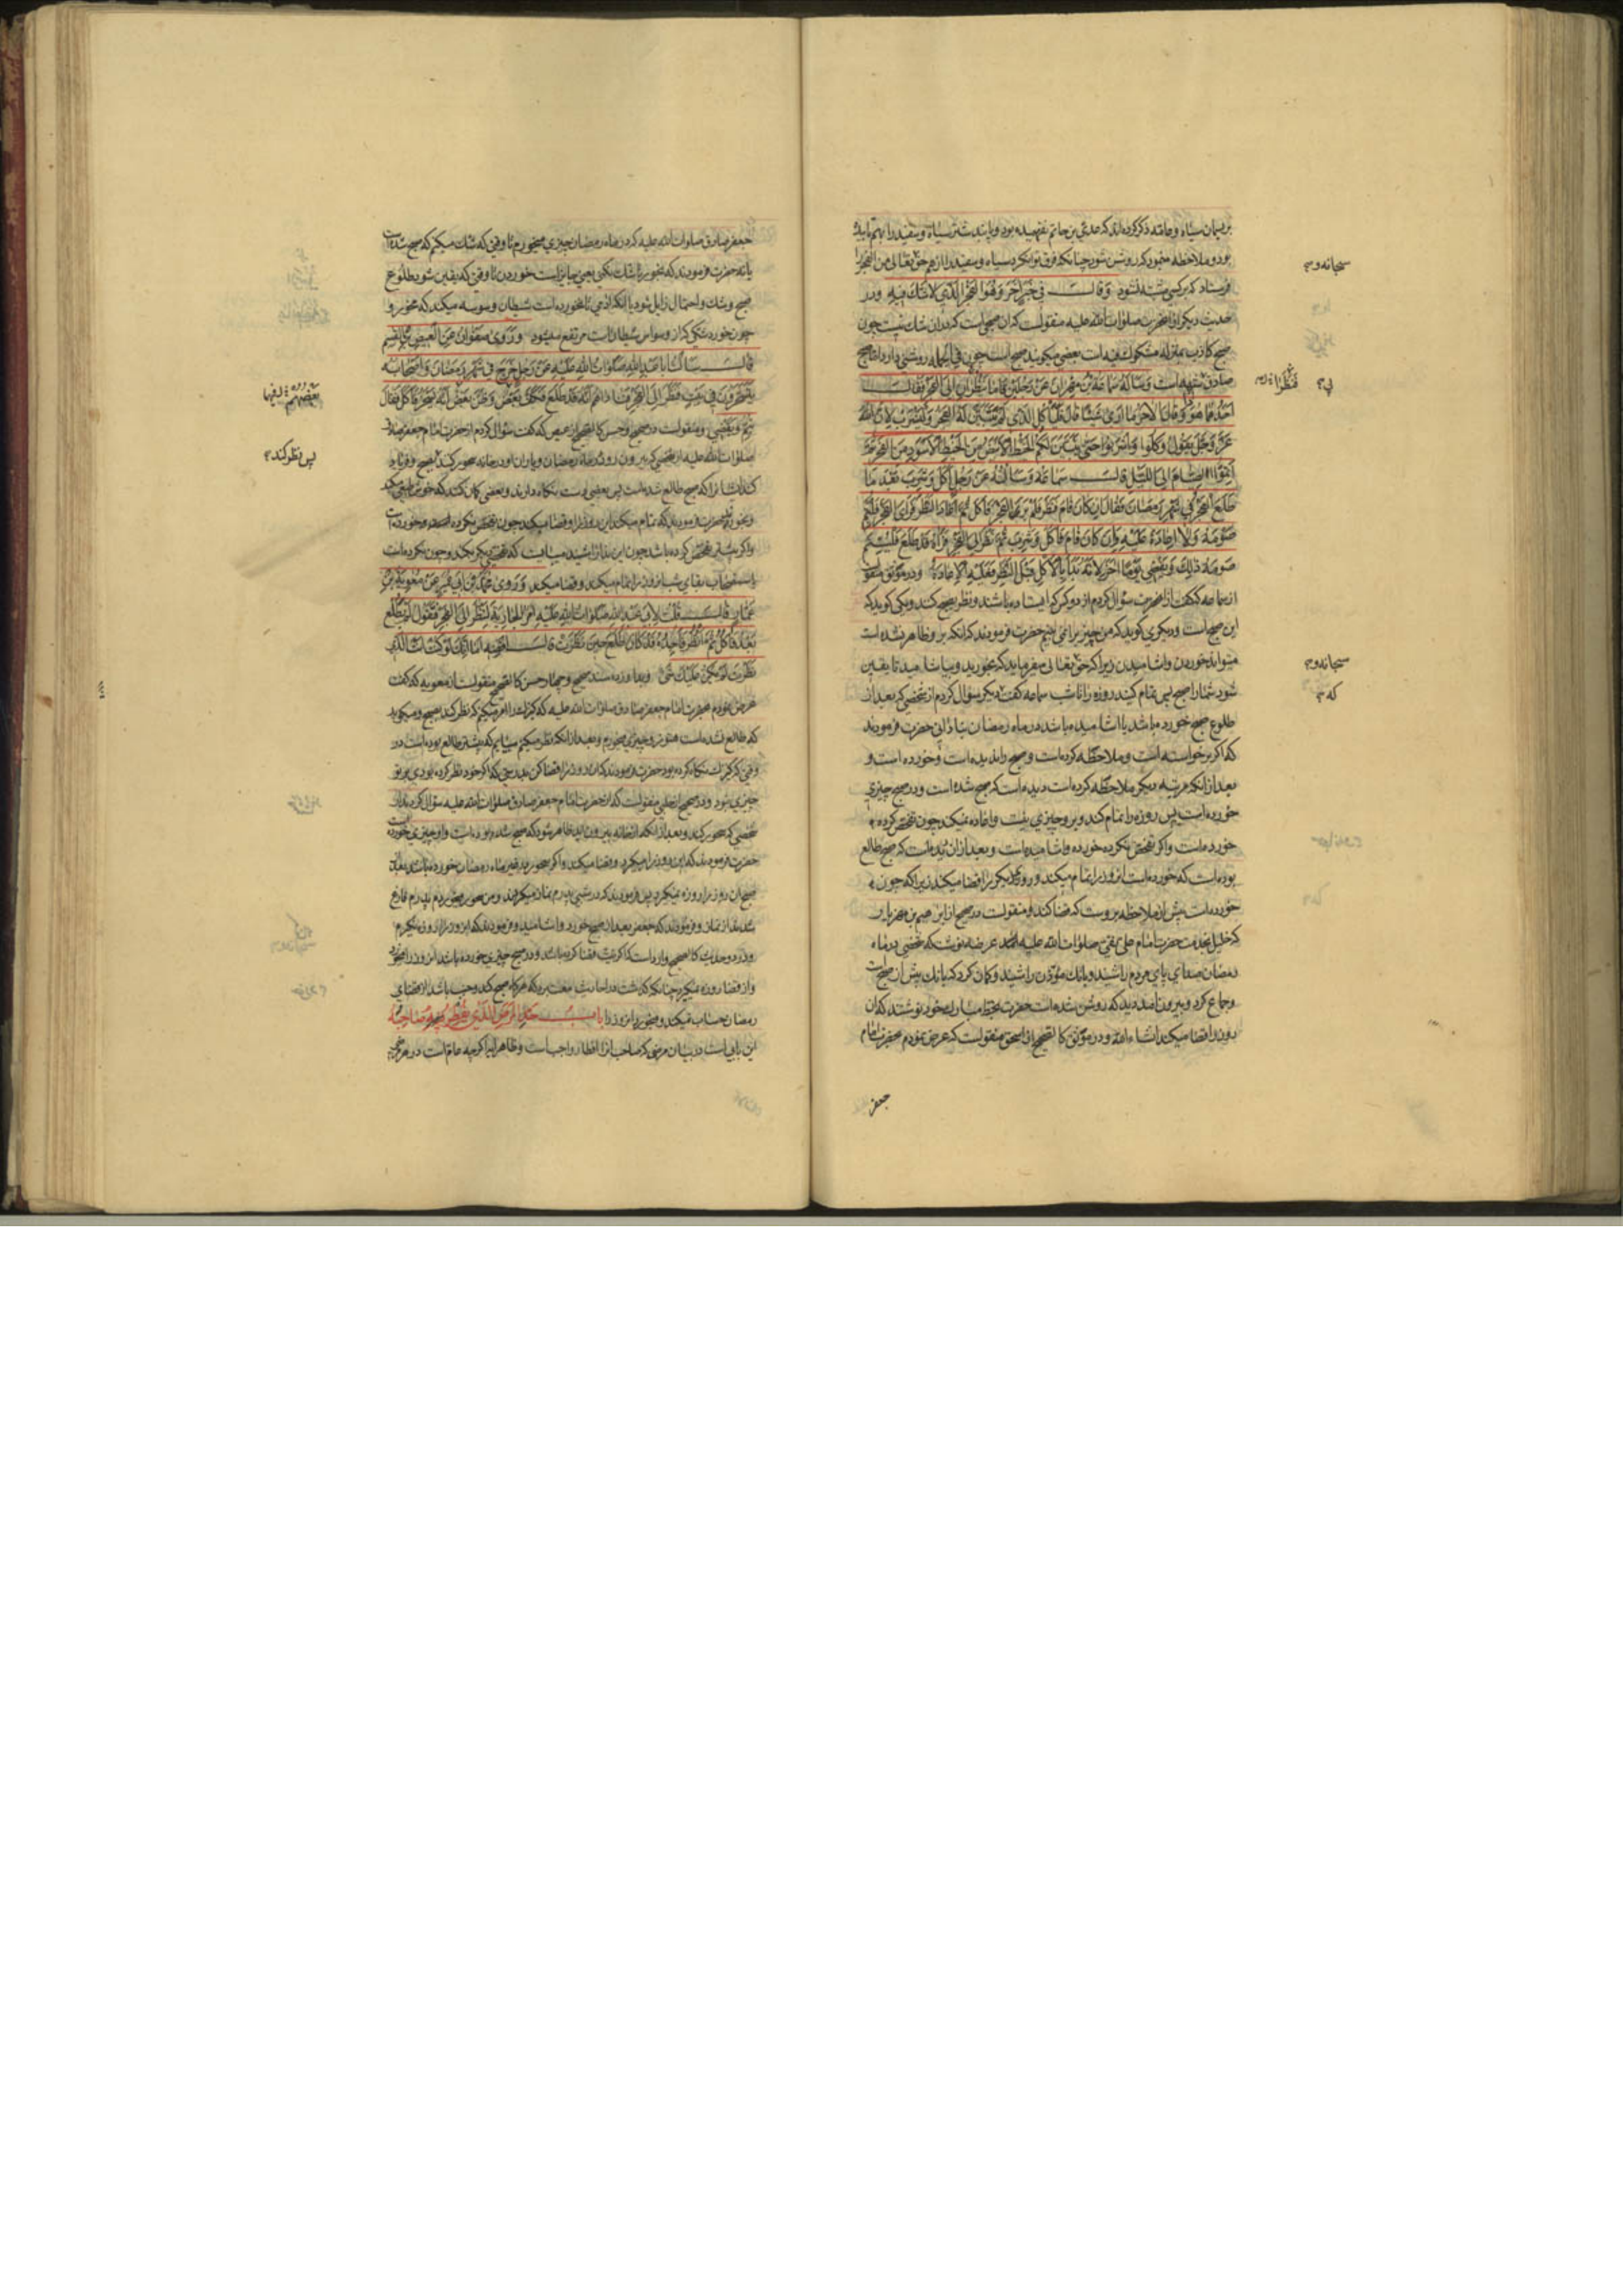 بریسمان سیاه و جامه ذکر کرده‌اند که عدی بن حاتم نفهمیده بود و پابند شتر سیاه و سفید را بهم تابیده
بود و ملاحظه مینمود که روشن شود چنانکه فرق توان کرد سیاه و سفید را از هم حق تعالی من الفجر را
فرستاد که بر کسی مشتبه نشود وَقالَ فی خَبَرٍ آخَرَ وَهُوَ الفَجرُ الَّذی لا شَكَّ فیهِ و در
حدیث دیگر از آنحضرت صلوات الله علیه منقولست که آن صبحی است که در آن شك نیست چون
صبح کاذب بمنزله مشکوك فیه است بعضی میگویند صبح است چون فی الجمله روشنی دارد اما صبح
صادق وَسَأَلَهُ سَماعَةُ بنُ مِهرانَ عَن رَجُلَینِ قاما یَنظُرانِ إِلَی الفَجرِ فَقالَ
أَحَدُهُما هُوَ ذا وَقالَ الآخَرُ ما أَرى شَیئًا قالَ فَلیَأکُلِ الَّذی لَم یَستَبِن لَهُ الفَجرُ وَلیَشرَب لِأَنَّ اللهَ
عَزَّ وَجَلَّ یَقولُ وَکُلوا وَاشرَبوا حَتّی یَتَبَیَّنَ لَکُمُ الخَیطُ الأَبیَضُ مِنَ الخَیطِ الأَسوَدِ مِنَ الفَجرِ ثُمَّ
أَتِمُّوا الصِّیامَ إِلَی اللَّیلِ قالَ سَماعَةُ وَسَأَلتُهُ عَن رَجُلٍ أَکَلَ وَشَرِبَ بَعدَ ما
طَلَعَ الفَجرُ فی شَهرِ رَمَضانَ فَقالَ إِن کانَ قامَ فَنَظَرَ فَلَم یَرَ الفَجرَ فَأَکَلَ ثُمَّ أَعادَ النَّظَرَ فَرَأَی الفَجرَ فَلیُتِمَّ
صَومَهُ وَلا إِعادَةَ عَلَیهِ وَإِن کانَ قامَ فَأَکَلَ وَشَرِبَ ثُمَّ نَظَرَ إِلَی الفَجرِ فَرَآهُ قَد طَلَعَ فَلیُتِمَّ
صَومَهُ ذلِكَ وَیَقضی یَومًا آخَرَ لِأَنَّهُ بَدَأَ بِالأَکلِ قَبلَ النَّظَرِ فَعَلَیهِ الإِعادَةُ و در موثق منقولست
از سماعه که گفت از آنحضرت سؤال کردم از دو کس که ایستاده باشند و نظر بصبح کنند و یکی گوید که
این صبح است و دیگری گوید که من چیزی را نمی بینم حضرت فرمودند که آنکه بر او ظاهر نشده است
میتواند خوردن و آشامیدن زیرا که حق تعالی میفرماید که بخورید و بیاشامید تا یقین
شود شما را صبح پس تمام کنید روزه را تا شب سماعه گفت دیگر سؤال کردم از شخصی که بعد از
طلوع صبح خورده باشد یا آشامیده باشد در ماه رمضان بنادانی حضرت فرمودند
که اگر برخواسته است و ملاحظه کرده است و صبح را ندیده است و خورده است و
بعد از آنکه مرتبه دیگر ملاحظه کرده است دیده است که صبح شده است و در صبح چیزی
خورده است پس روزه را تمام کند و بر او چیزی نیست و اعاده نمیکند چون تفحص کرده
خورده است و اگر تفحص نکرده خورده و آشامیده است و بعد از آن دیده است که صبح طالع
بوده است که خورده است آن روز را تمام میکند و روز دیگر را قضا میکند زیرا که چون
خورده است پیش از ملاحظه بر اوست که قضا کند و منقولست در صحیح از ابراهیم بن مهزیار
که خلیل بخدمت حضرت امام علی نقی صلوات الله علیه عرضه نوشت که شخصی در ماه
رمضان صدای پای مردم را شنید و بانك مؤذن را شنید و گمان کرد که بانك پیش از صبح است
و جماع کرد و بیرون آمد دید که روشن شده است حضرت بخط مبارك خود نوشتند که آن
روز را قضا میکند انشاء الله و در موثق کالصحیح از اسحق منقولست که عرض نمودم بحضرت امام
جعفر
سبحانه و
فَنَظَرا
سبحانه و
که
جعفر صادق صلوات الله علیه که در ماه رمضان چیزی میخورم تا وقتی که شك میکنم که صبح شده است
یا نه حضرت فرمودند که بخور تا شك نکنی یعنی جایز است خوردن تا وقتی که یقین شود طلوع
صبح و شك و احتمال زایل شود یا آنکه آدمی تا نخورده است شیطان وسوسه میکند که مخور و
چون خورد شکی که از وسواس شیطان است مرتفع میشود وَرَوى صَفوانُ عَنِ العیصِ بنِ القاسِمِ
قالَ سَأَلتُ أَبا عَبدِ اللهِ صَلَواتُ اللهِ عَلَیهِ عَن رَجُلٍ خَرَجَ فی شَهرِ رَمَضانَ وَأَصحابُهُ
یَتَسَحَّرونَ فی بَیتٍ فَنَظَرَ إِلَی الفَجرِ فَناداهُم أَنَّهُ قَد طَلَعَ فَکَفَّ بَعضٌ وَظَنَّ بَعضٌ أَنَّهُ یَسخَرُ فَأَکَلَ فَقالَ
یُتِمُّ وَیَقضی و منقولست در صحیح و حسن کالصحیح از عیص که گفت سؤال کردم از حضرت امام جعفر صادق
صلوات الله علیه از شخصی که بیرون رود در ماه رمضان و یاران او در خانه سحور کنند بصبح و فریاد
کند ایشان را که صبح طالع شده است پس بعضی دست نگاه دارند و بعضی گمان کنند که خوش طبعی میکند
و بخورند حضرت فرمودند که تمام میکند این روز را و قضا میکند چون تفحص نکرده و خورده است
یا استصحاب بقای شب آن روز را تمام میکند و قضا میکند وَرَوى مُحَمَّدُ بنُ أَبی عُمَیرٍ عَن مُعاوِیَةَ بنِ
عَمّارٍ قالَ قُلتُ لِأَبی عَبدِ اللهِ صَلَواتُ اللهِ عَلَیهِ آمُرُ الجارِیَةَ لِتَنظُرَ إِلَی الفَجرِ فَتَقولُ لَم یَطلُع
بَعدُ فَآکُلُ ثُمَّ أَنظُرُ فَأَجِدُهُ قَد کانَ طَلَعَ حینَ نَظَرَت قالَ اقضِهِ أَما إِنَّكَ لَو کُنتَ أَنتَ الَّذی
نَظَرتَ لَم یَکُن عَلَیكَ شَیءٌ و بدو سند صحیح و چهار حسن کالصحیح منقولست از معویه که گفت
عرض نمودم بحضرت امام جعفر صادق صلوات الله علیه که کنیزك را امر میکنم که نظر کند بصبح و میگوید
که طالع نشده است هنوز و چیزی میخورم و بعد از آنکه نظر میکنم مییابم که پیشتر طالع بوده است در
وقتی که کنیزك نگاه کرده بود حضرت فرمودند که آن روز را قضا کن بدرستی که اگر خود نظر کرده بودی بر تو
چیزی نبود و در صحیح از حلبی منقولست که از حضرت امام جعفر صادق صلوات الله علیه سؤال کردند از
شخصی که سحور کند و بعد از آنکه از خانه بیرون آید ظاهر شود که صبح شده بوده است و او چیزی خورده است
حضرت فرمودند که این روز را میگیرد و قضا میکند و اگر سحور در غیر ماه رمضان خورده باشد بعد از
صبح آن روز را روزه نمیگیرد پس فرمودند که در شبی پدرم نماز میکردند و من سحور میخوردم پدرم فارغ
شدند از نماز و فرمودند که جعفر بعد از صبح خورد و آشامید و فرمودند که این روز را روزه نگیرم
و در دو حدیث کالصحیح وارد است که اگر نیت قضا کرده باشد و در صبح چیزی خورده باشد آن روز را بخورد
و از قضا روزه نمیگیرد چنانکه گذشت در احادیث معتبره که هرگاه صبح کند و جنب باشد از قضای
رمضان حساب نمیکند و بخورد آن روز را بابُ حَدِّ المَرَضِ الَّذی یُفطِرُ صاحِبُهُ
این بابی است در بیان مرضی که صاحب آنرا افطار واجب است و ظاهرا اگرچه عام است در هر مرضی
بعضهم فیها
پس نظر کند